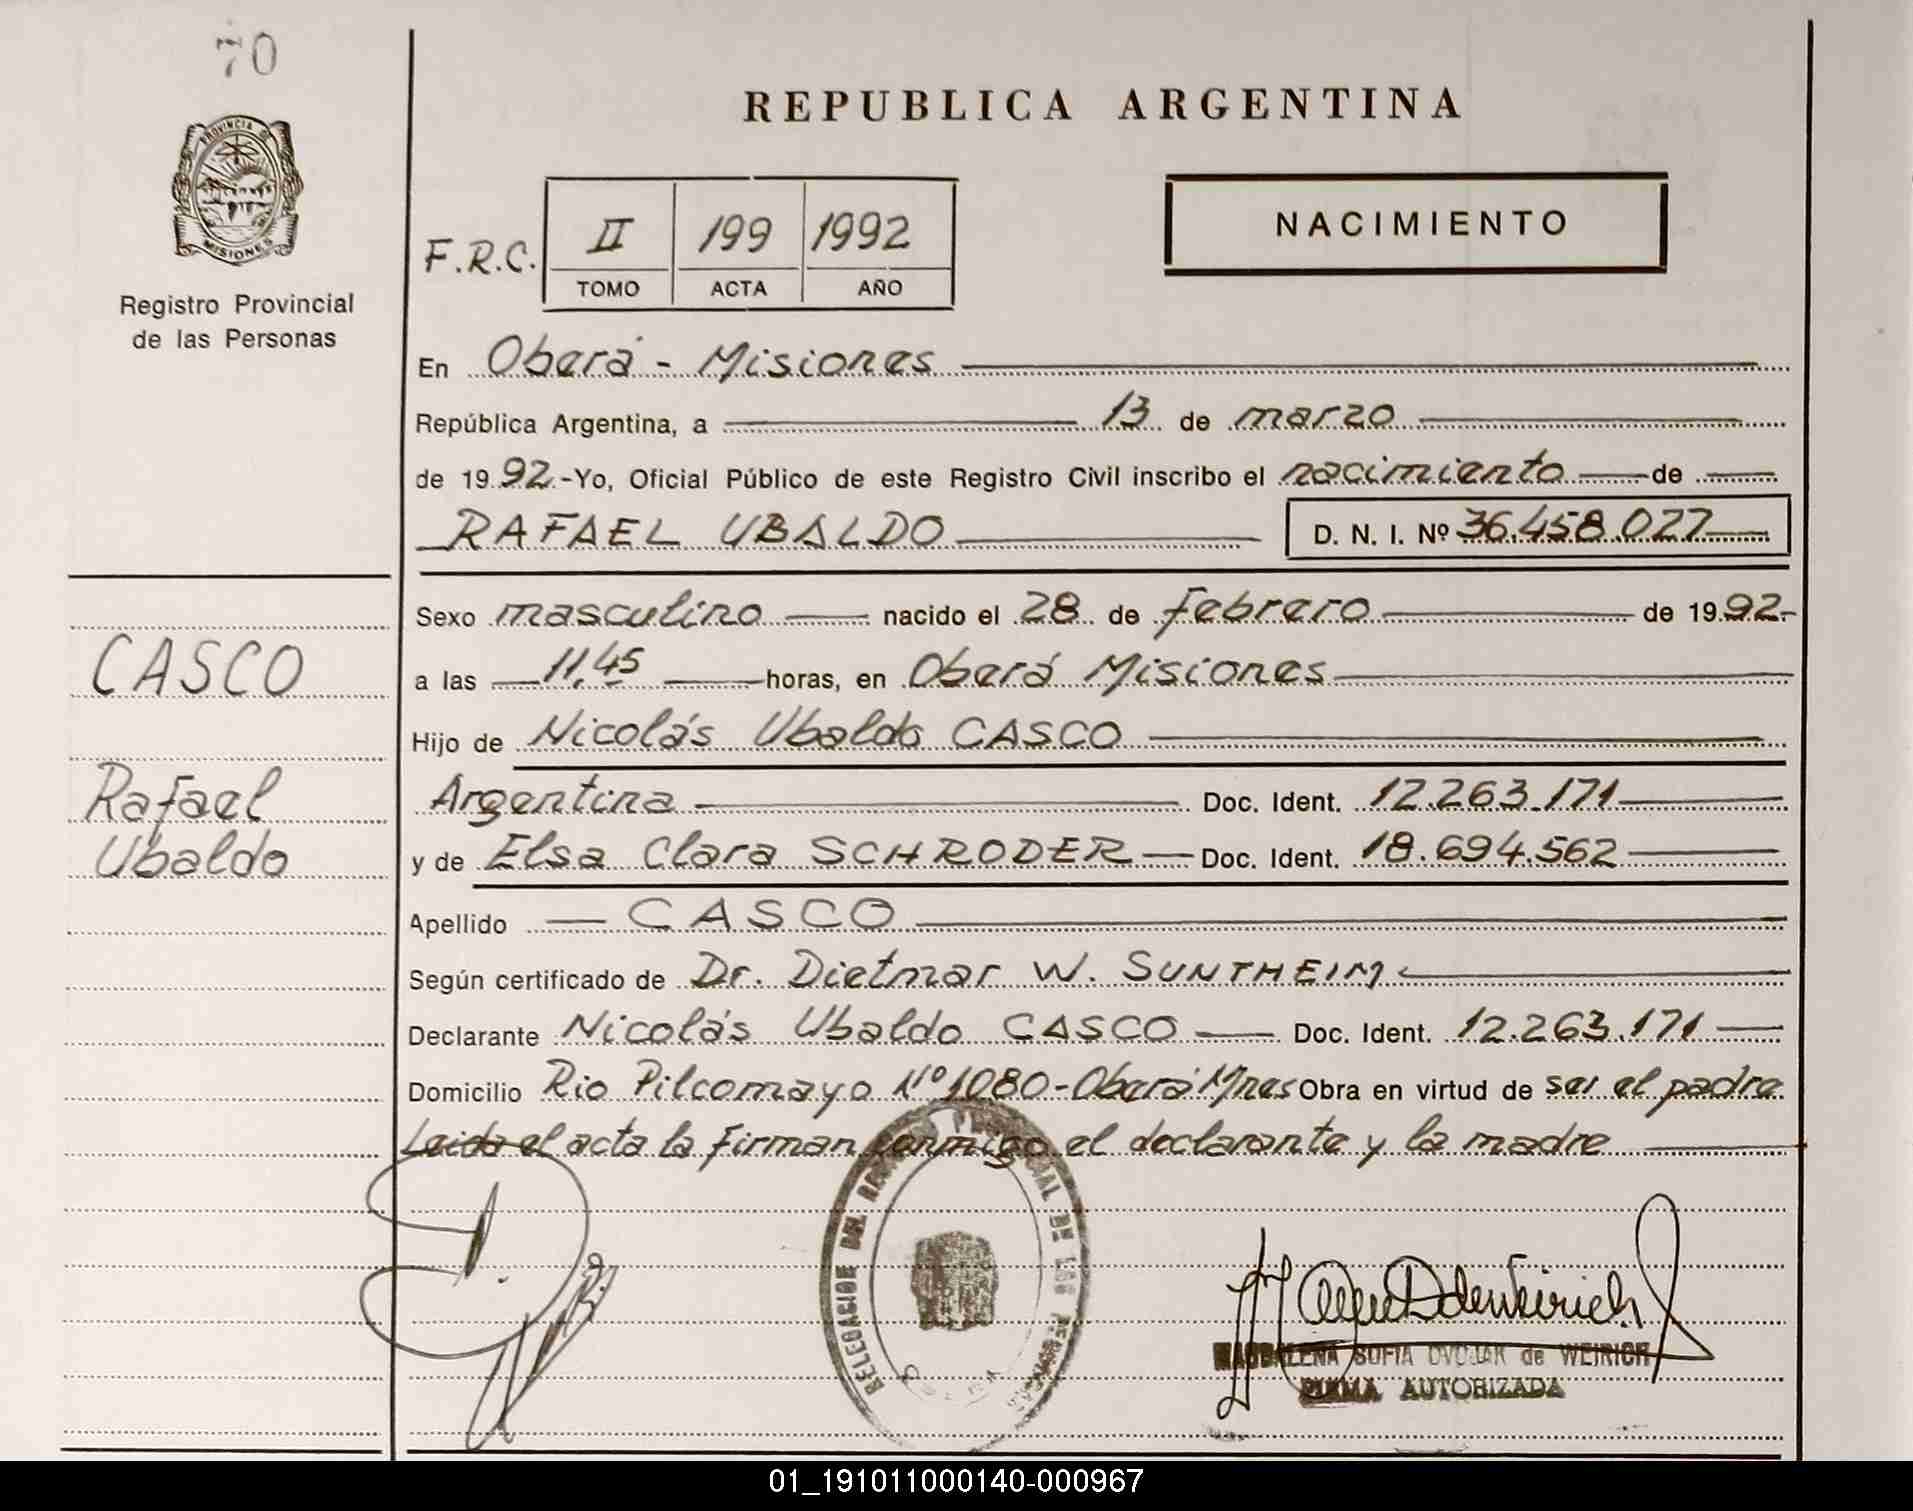 70
PROVINCIA DE
MISIONES
Registro Provincial
de las Personas
REPUBLICA ARGENTINA
F.R.C.
II 199 1992
TOMO ACTA AÑO
NACIMIENTO
En Oberá - Misiones
República Argentina, a 13 de marzo
de 1992.-Yo, Oficial Público de este Registro Civil inscribo el nacimiento de
RAFAEL UBALDO D. N. I. Nº 36.458.027
Sexo masculino nacido el 28 de Febrero de 1992.-
a las 11,45 horas, en Oberá Misiones
Hijo de Nicolás Ubaldo CASCO
Argentina Doc. Ident. 12.263.171
y de Elsa Clara SCHRODER Doc. Ident. 18.694.562
Apellido CASCO
Según certificado de Dr. Dietmar W. SUNTHEIM
Declarante Nicolás Ubaldo CASCO Doc. Ident. 12.263.171
Domicilio Rio Pilcomayo Nº 1080-Oberá Mnes Obra en virtud de ser el padre.
Leida el acta la Firman conmigo el declarante y la madre
CASCO
Rafael
Ubaldo
DELEGACION DEL REGISTRO PROVINCIAL DE LAS PERSONAS
MAGDALENA SOFIA DVOJAK de WEIRICH
FIRMA AUTORIZADA
01_191011000140-000967